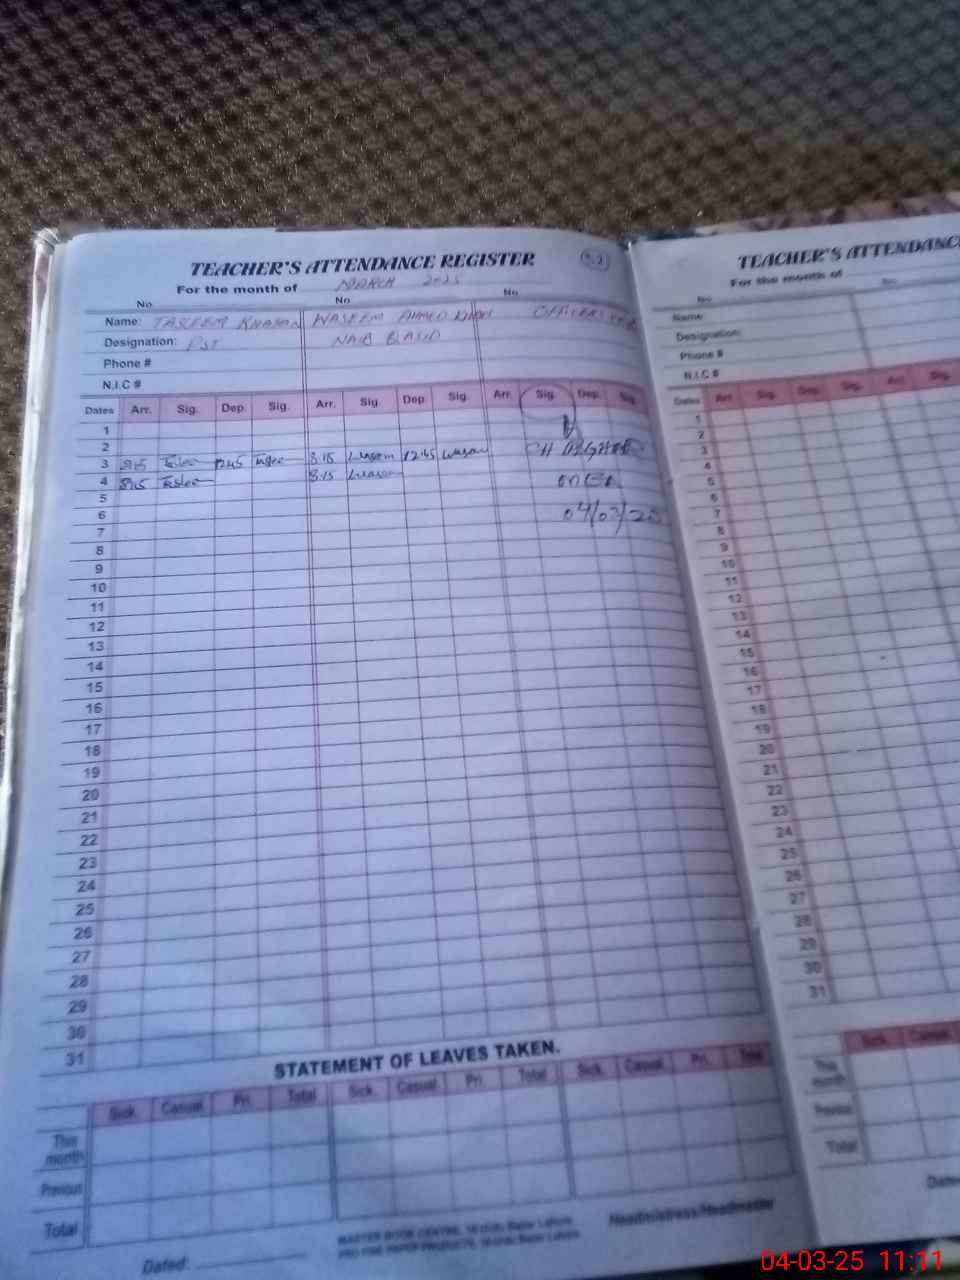 TEACHER'S ATTENDANCE REGISTER
For the month of MARCH 2025
No. No No
Name: TASLEEM WASEEM AHMED
Designation: PST NAIB QASID
Phone #
N.I.C #
Dates Arr. Sig. Dep. Sig. Arr. Sig. Dep Sig. Arr. Sig. Dep. Sig.
1
2
3 8:15 Taslee 12:45 Taslee 8:15 Waseem 12:45 Waseem
4 8:15 Taslee 8:15 Waseem
5
6 04/03/25
7
8
9
10
11
12
13
14
15
16
17
18
19
20
21
22
23
24
25
26
27
28
29
30
31
STATEMENT OF LEAVES TAKEN.
Sick. Casual. Pri. Total Sick. Casual. Pri. Total Sick. Casual. Pri. Total
This month
Previous
Total
Headmistress/Headmaster
Dated:
MASTER BOOK CENTRE, Urdu Bazar Lahore.
TEACHER'S ATTENDANCE
For the month of
No
Name:
Designation:
Phone #
N.I.C #
Dates Arr. Sig. Dep. Sig. Arr. Sig.
1
2
3
4
5
6
7
8
9
10
11
12
13
14
15
16
17
18
19
20
21
22
23
24
25
26
27
28
29
30
31
Sick. Casual
This month
Previous
Total
Dated
04-03-25 11:11